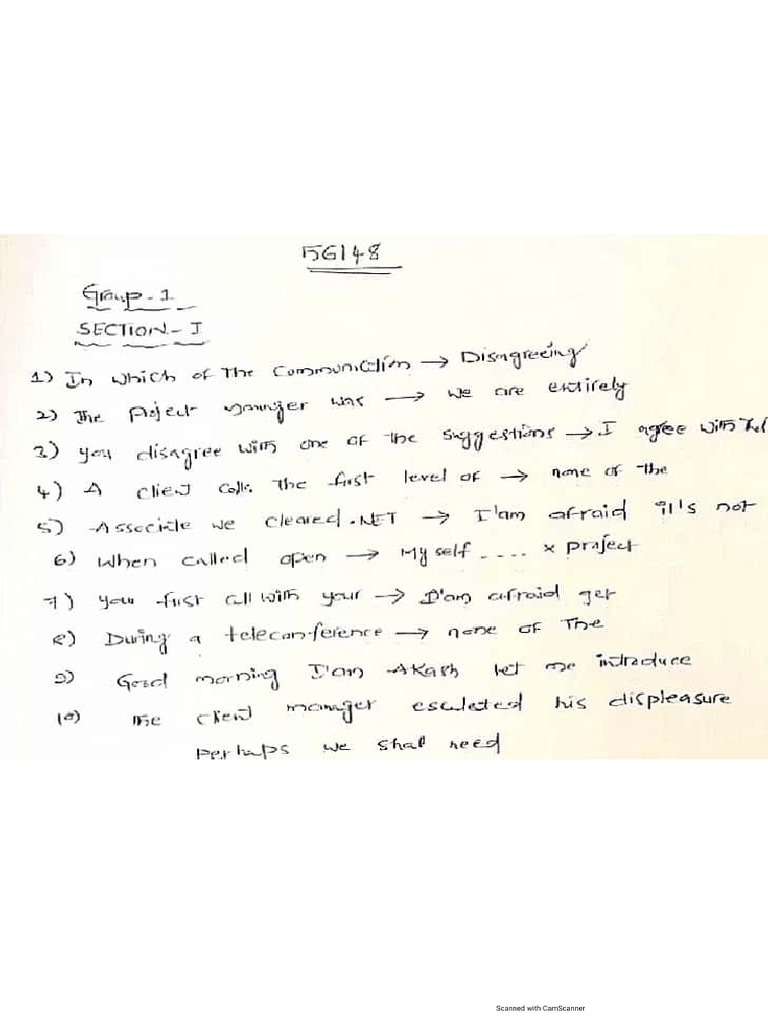 56148
Group-1
SECTION-I
1) In which of the Communication → Disagreeing
2) The Project manager was → we are entirely
3) you disagree with one of the suggestions → I agree with
4) A client calls the first level of → none of the
5) Associate we cleared .NET → I'am afraid it's not
6) When called open → Myself .... x project
7) your first call with your → I'am afraid get
8) During a teleconference → none of The
9) Good morning I'am Akash let me introduce
10) The client manager escalated his displeasure
perhaps we shall need
Scanned with CamScanner